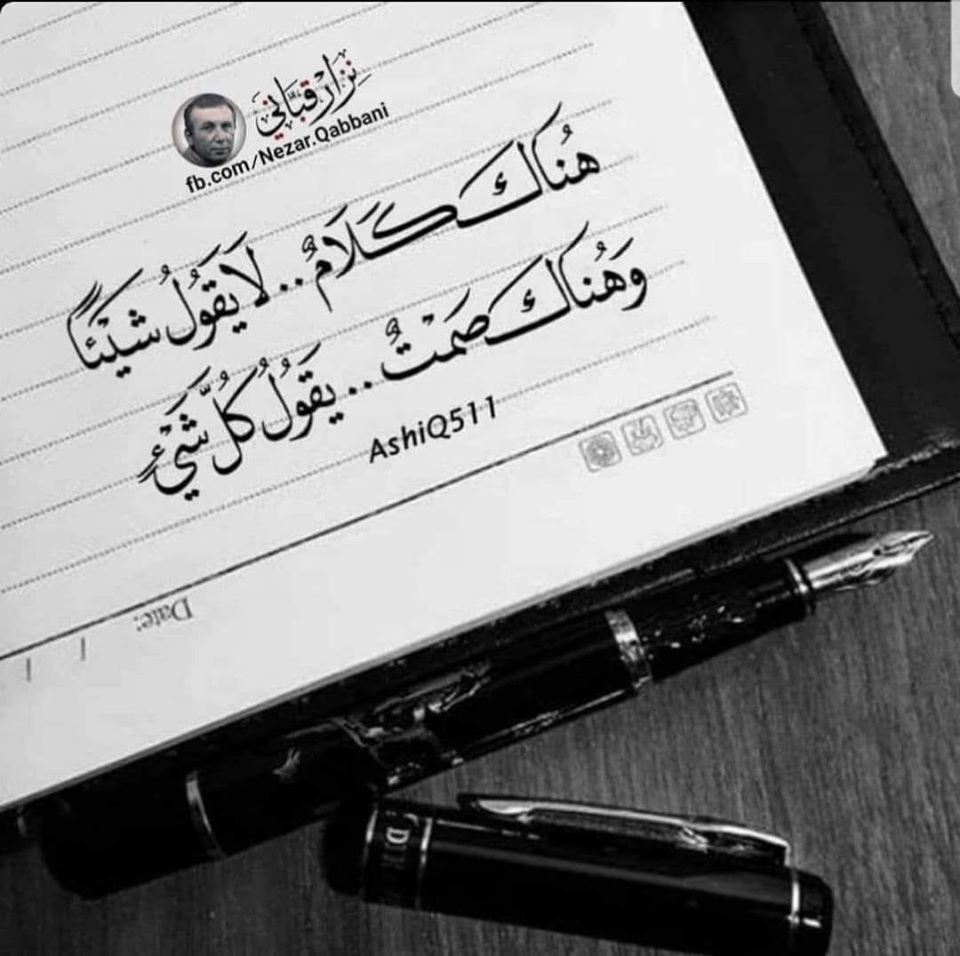 نِزار قبّاني
fb.com/Nezar.Qabbani
هُناكَ كَلَامٌ.. لَا يَقُولُ شَيْئاً
وَهُناكَ صَمْتٌ.. يَقُولُ كُلَّ شَيْءٍ
AshiQ511
Date:
/ /
D